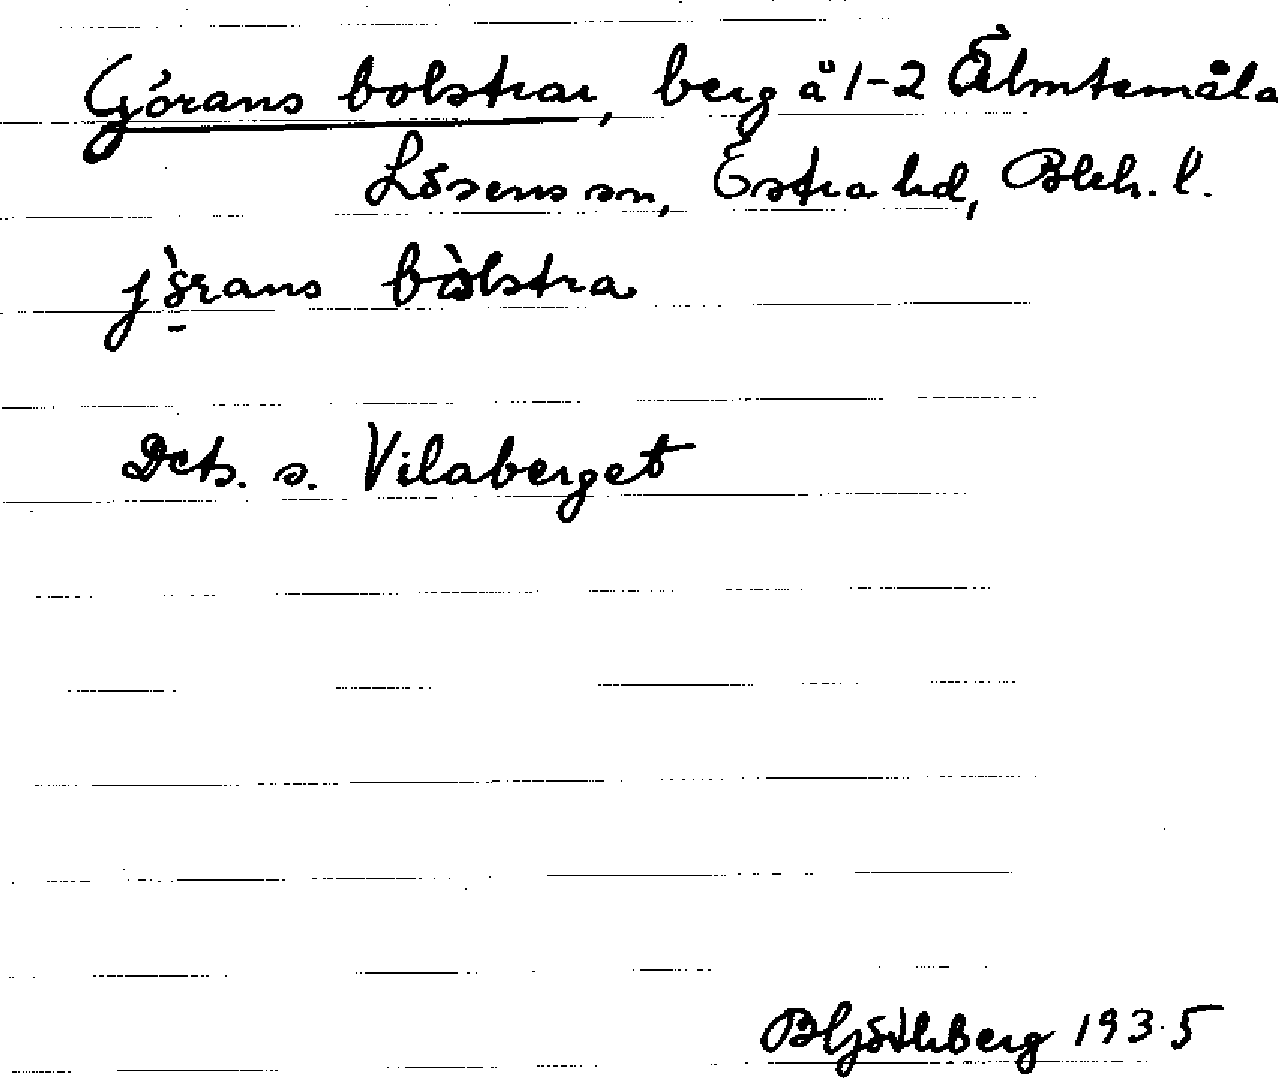 Görans bolstrar, berg å 1-2 Älmtamåla
Lösens sn, Östra hd, Blek. l.
j`öṟans bòlstra
Dets. s. Vilaberget
1935